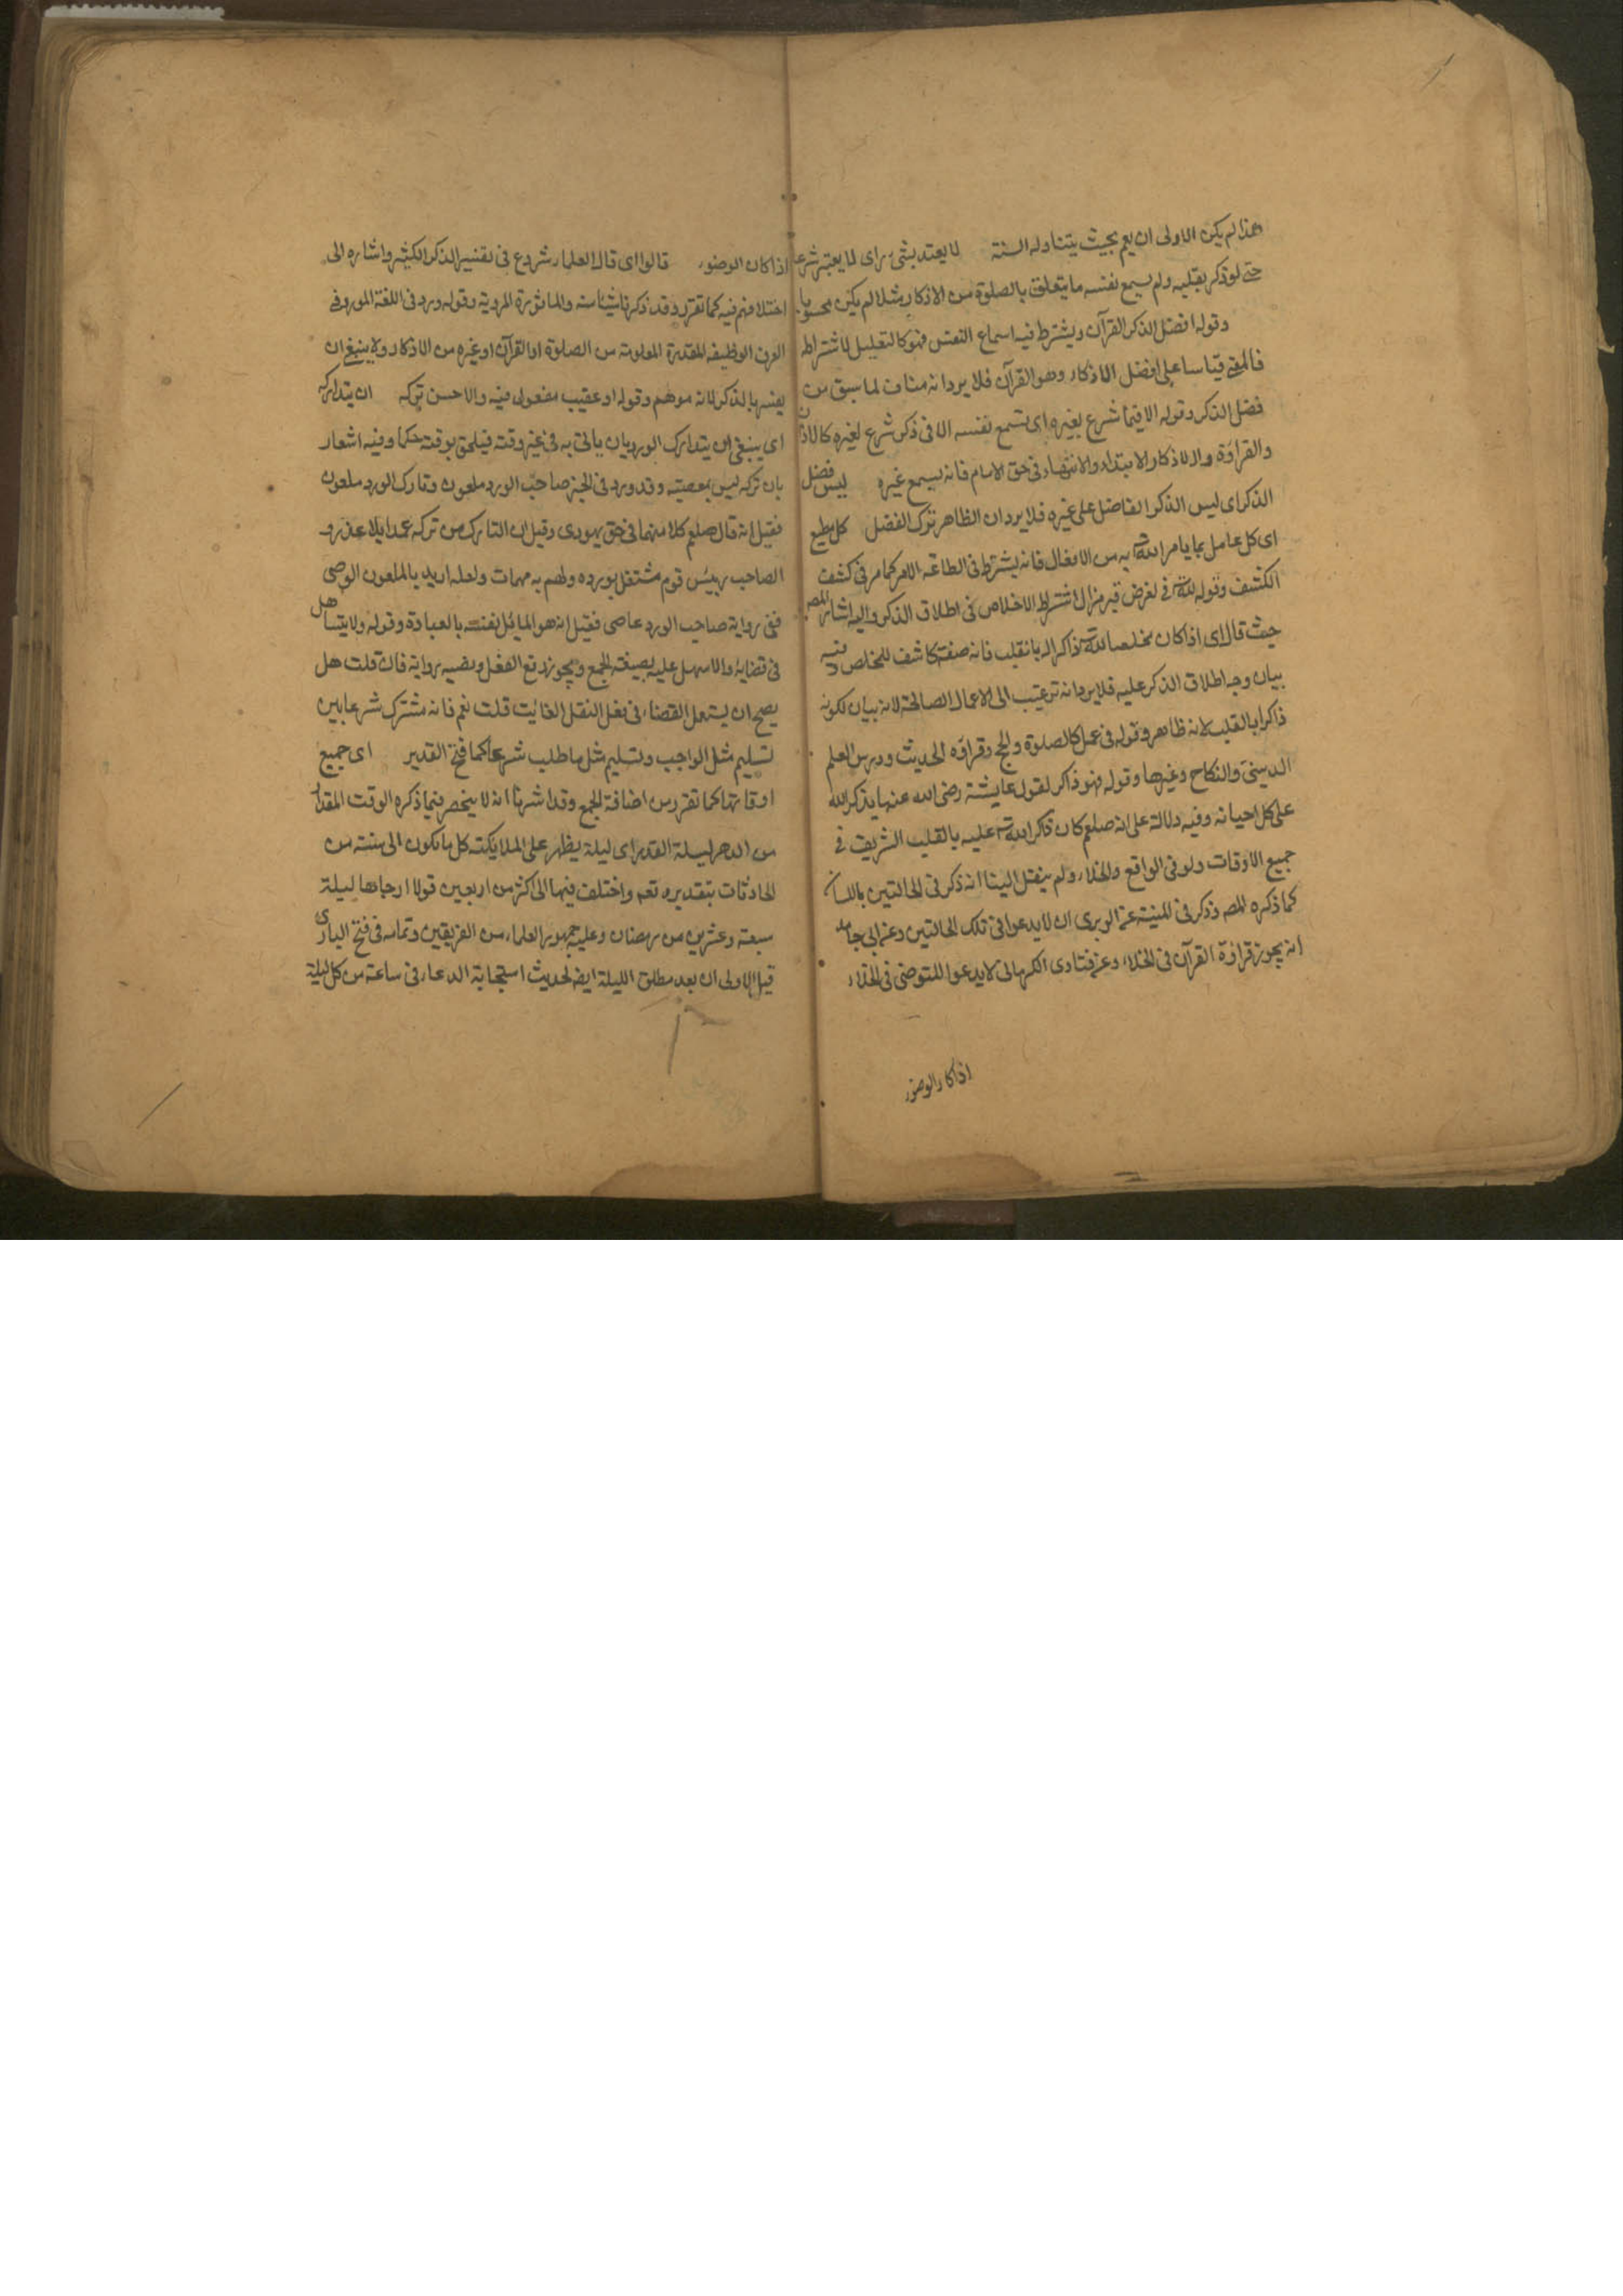 هذا لم يكن الاولى ان يعم بحيث يتناوله السنة لا يعتد بشئ براى لما يعتبر شرعا
حتى لو ذكر بقلبه ولم يسمع نفسه ما يتعلق بالصلوة من الاذكار مثلا لم يكن محسوبا
وقوله افضل الذكر القرآن ويشترط فيه اسماع النفس فهو كالتعليل لاشتراطه
قياسا على افضل الاذكار وهو القرآن فلا يرد انه مناف لما سبق من
فضل الذكر وقوله الا فيما شرع بغيره اى يسمع نفسه الا فى ذكر شرع لغيره كالاذان
والقراءة والاذكار الابتداء والانتهاء فى حق الامام فانه يسمع غيره ليس فضل
الذكر اى ليس الذكر الفاضل على غيره فلا يرد ان الظاهر ترك الفضل كل مطيع
اى كل عامل بما يامر الله به من الافعال فانه يشترط فى الطاعة الامر كما مر فى كشف
الكشف وقوله لله فى لغرض اشتراط الاخلاص فى اطلاق الذكر واليه اشار المصه
حيث قال اى اذا كان مخلصا لله ذاكرا له بالقلب فانه صفة كاشف للمخلص وفيه
بيان وجه اطلاق الذكر عليه فلا يرد انه ترغيب الى الاعمال الصالحة لانه بيان لكونه
ذاكرا بالقلب لانه ظاهر وقوله فى عمل كالصلوة والحج وقراءة الحديث ودرس العلم
الدينى والنكاح وغيرها وقوله فهو ذاكر لقول عايشة رضى الله عنها يذكر الله
على كل احيانه وفيه دلالة على انه صلعم كان ذاكر الله عليه بالقلب الشريف فى
جميع الاوقات ولو فى الواقع والخلاء ولم ينقل الينا انه ذكر فى الحالتين باللسان
كما ذكره المصه وذكر فى المنية عن الوبرى ان لا يدعوا فى تلك الحالتين وعن ابى حامد
انه يجوز قراءة القرآن فى الخلاء وعن فتاوى الكرمانى لا يدعوا للمتوضى فى الخلاء
اذا كان الوضوء
اذا كان الوضوء قالوا اى قال العلماء شروع فى تفسير الذكر الكثير واشاره الى
اختلافهم فيه كما تقرر وقد ذكرنا شيئا منه والماثورة المروية وقوله ورد فى اللغة المورد فى
العرف الوظيفه المقدرة المعلومة من الصلوة او القرآن او غيره من الاذكار ولا ينبغى ان
يفسر بالذكر لانه موهم وقوله او عقيب مفعول فيه والاحسن تركه ان يتداركه
اى ينبغى ان يتدارك الورد بان ياتى به فى غير وقته فيلحق بوقته حكما وفيه اشعار
بان تركه ليس بمعصية وقد ورد فى الخبر صاحب الورد ملعون وتارك الورد ملعون
فقيل انه قال صلعم كلا منهما فى حق يهودى وقيل ان التارك من تركه عمدا بلا عذر و
الصاحب رييس قوم مشتغل بورده ولهم به مهمات ولعله اريد بالملعون الوصى
ففى رواية صاحب الورد عاصى فقيل انه هو المائل نفسه بالعبادة وقوله ولا يتساهل
فى قضايه والاسهل عليه بصيغة الجمع ويجوز رفع الفعل ونصبه رواية فان قلت هل
يصح ان يستعمل القضاء فى فعل النفل الفائت قلت نعم فانه مشترك شرعا بين
تسليم مثل الواجب وتسليم مثل ما طلب شرعا كما فتح القدير اى جميع
اوقاتها كما تقرر من اضافة الجمع وقد اشرنا انه لا ينحصر فيما ذكره الوقت المقدار
من الدهر ليلة القدر اى ليلة يظهر على الملايكته كل ما تكون الى سنته من
الحادثات بتقديره تعه واختلف فيها الى اكثر من اربعين قولا ارجاها ليلة
سبعة وعشرين من رمضان وعليه جمهور العلماء من الفريقين وتمامه فى فتح البارى
قيل الاولى ان بعد مطلق الليلة ايضه لحديث استجابة الدعاء فى ساعة من كل ليلة